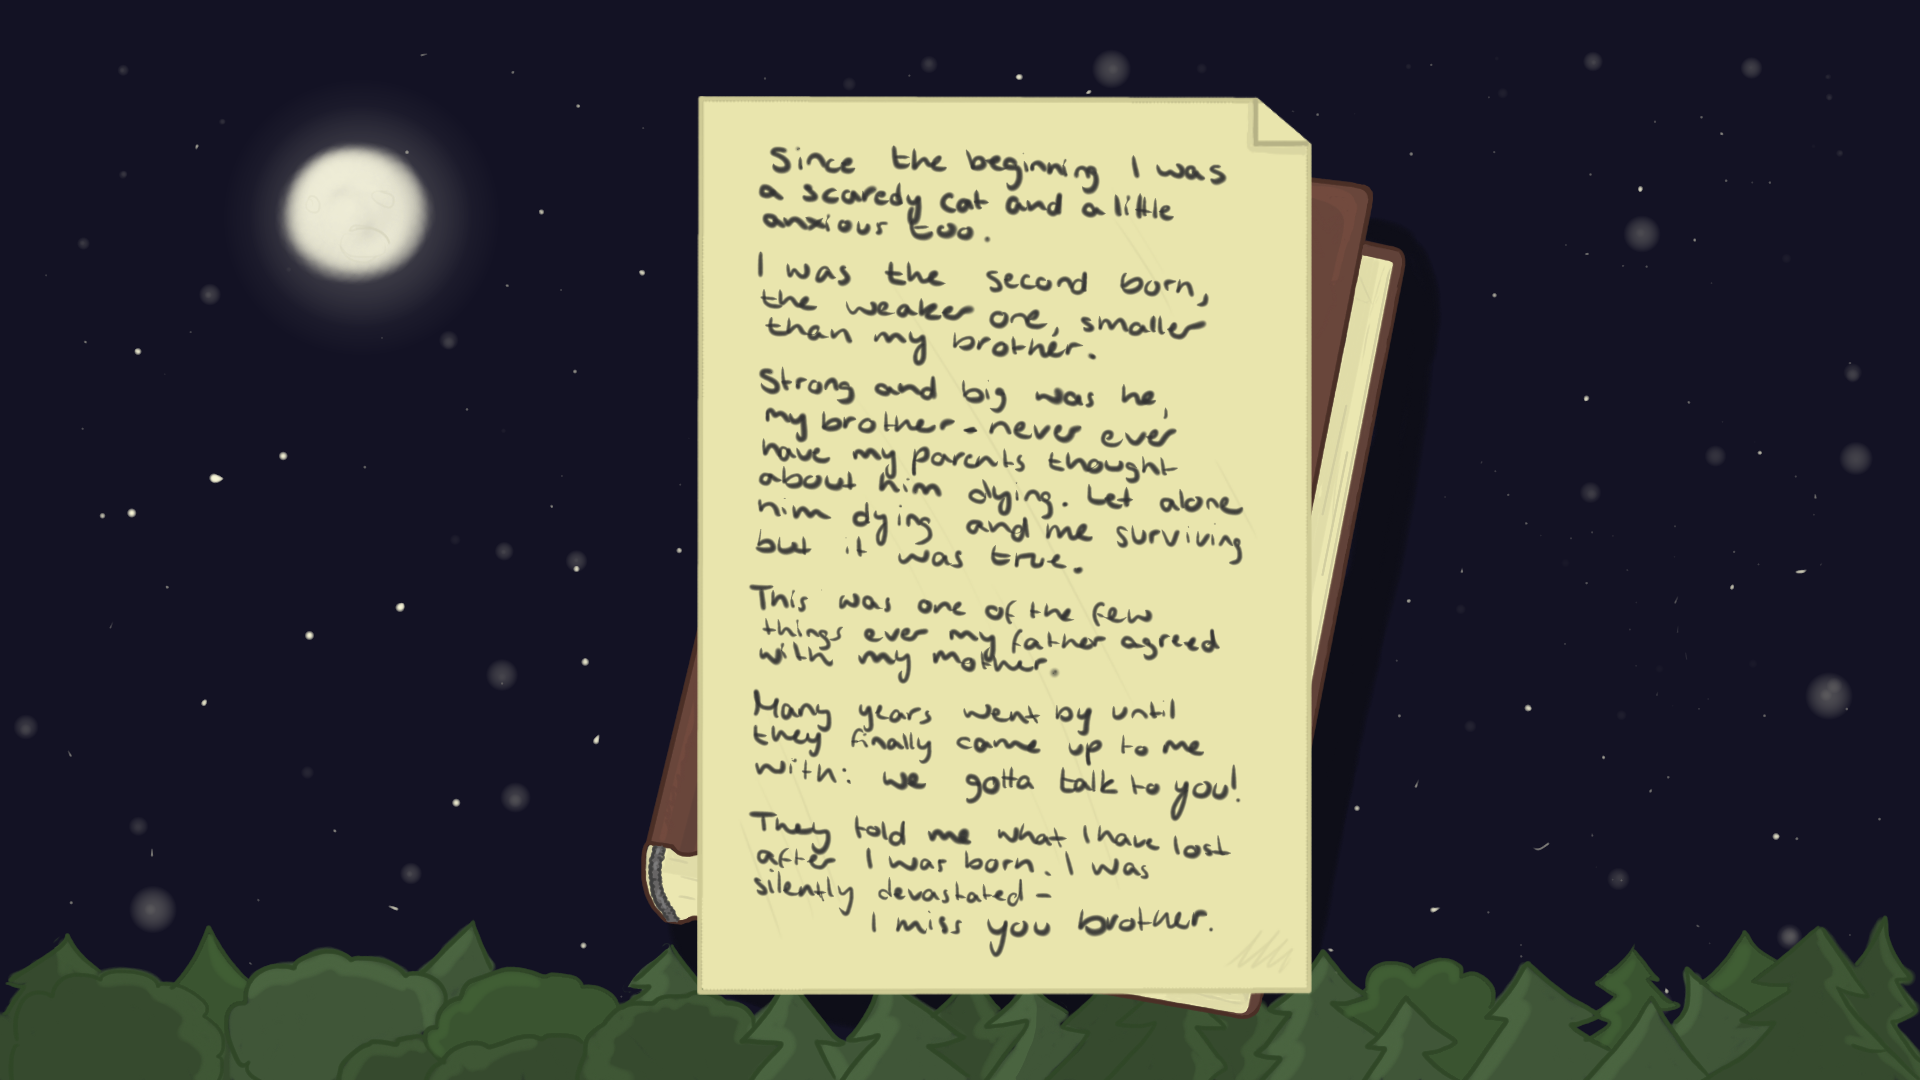 Since the beginning I was
a scaredy cat and a little
anxious too.
I was the second born,
the weaker one, smaller
than my brother.
Strong and big was he,
my brother - never ever
have my parents thought
about him dying. Let alone
him dying and me surviving
but it was true.
This was one of the few
things ever my father agreed
with my mother.
Many years went by until
they finally came up to me
with: we gotta talk to you!
They told me what I have lost
after I was born. I was
silently devastated -
I miss you brother.